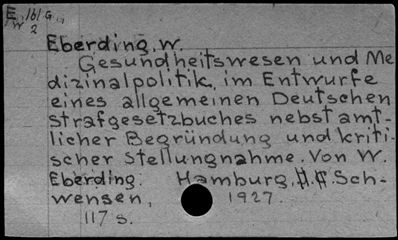 E 161 G
W 2
Eberding, W.
Gesundheitswesen und Me
dizinalpolitik, im Entwurfe
eines allgemeinen Deutschen
Strafgesetzbuches nebst amt-
licher Begründung und kriti-
scher Stellungnahme. Von W.
Eberding. Hamburg, Sch-
wensen, 1927.
117 s.